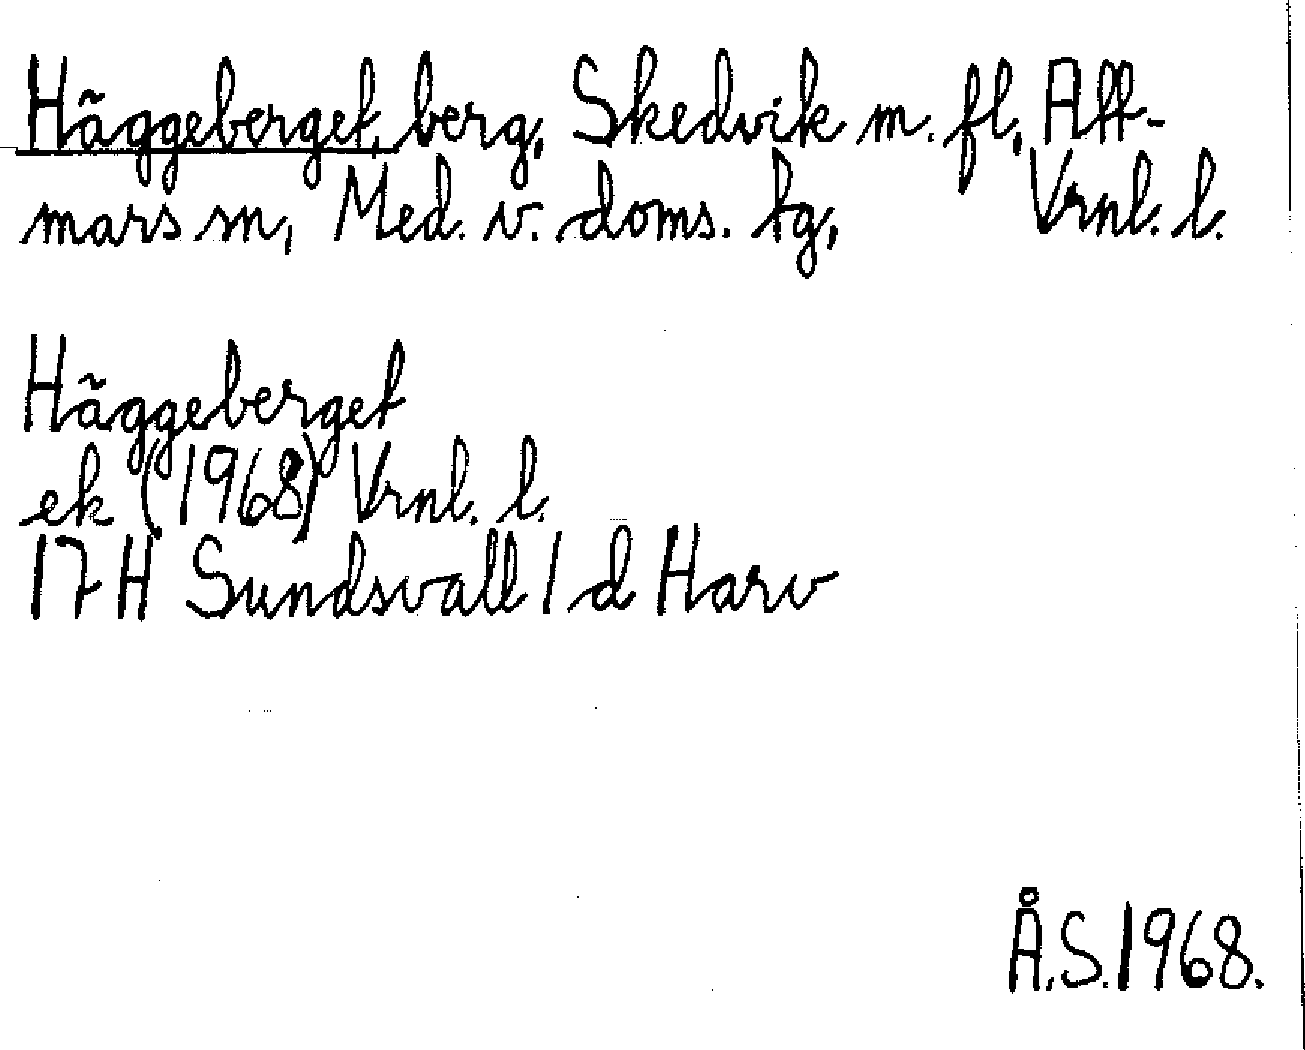 Häggeberget, berg, Skedvik m. fl, Att-
mars sn, Med. v. doms. tg, Vrnl. l.
Häggeberget
ek (1968) Vrnl. l.
17 H Sundsvall 1 d Harv
Å.S.1968.